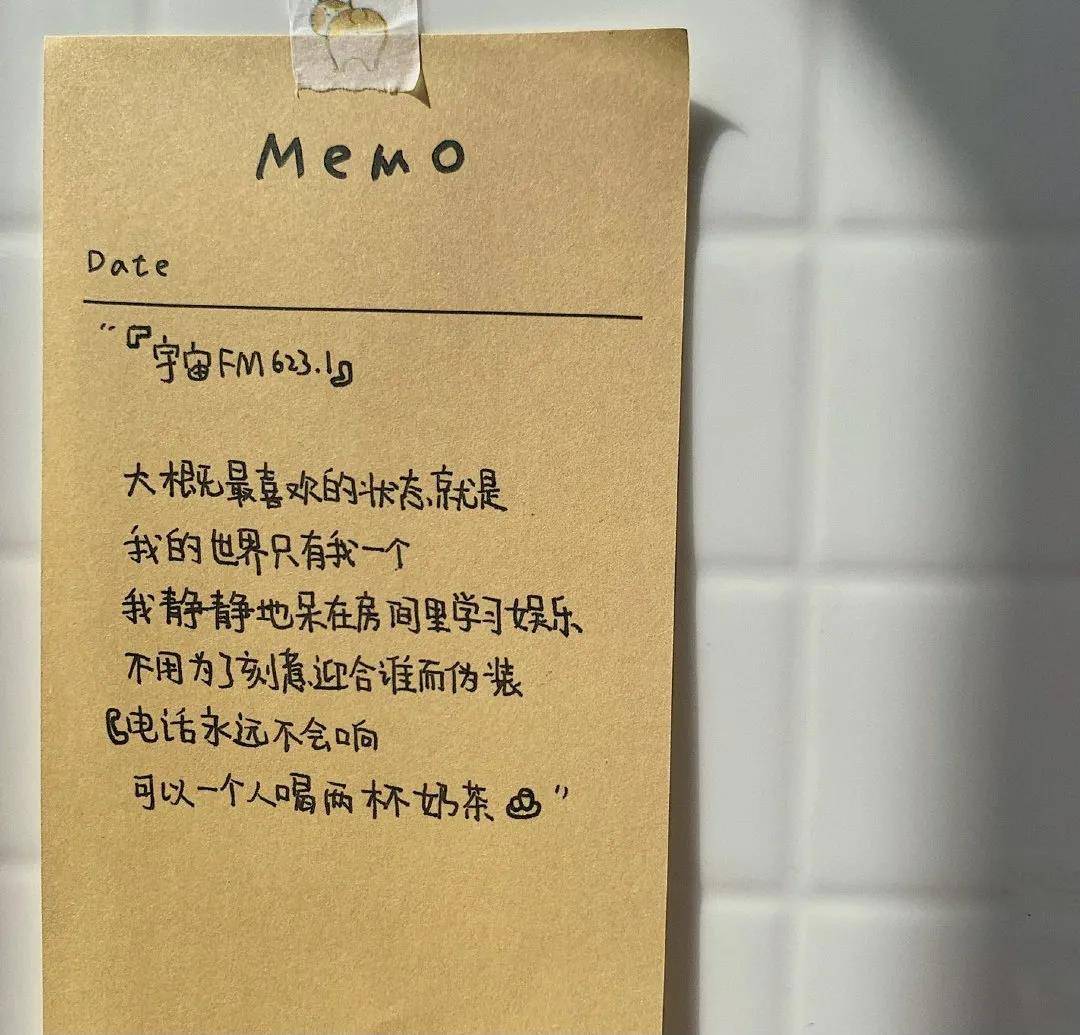 Memo
Date
“『宇宙FM623.1』
大概最喜欢的状态就是
我的世界只有我一个
我静静地呆在房间里学习娱乐
不用为了刻意迎合谁而伪装
电话永远不会响
可以一个人喝两杯奶茶”